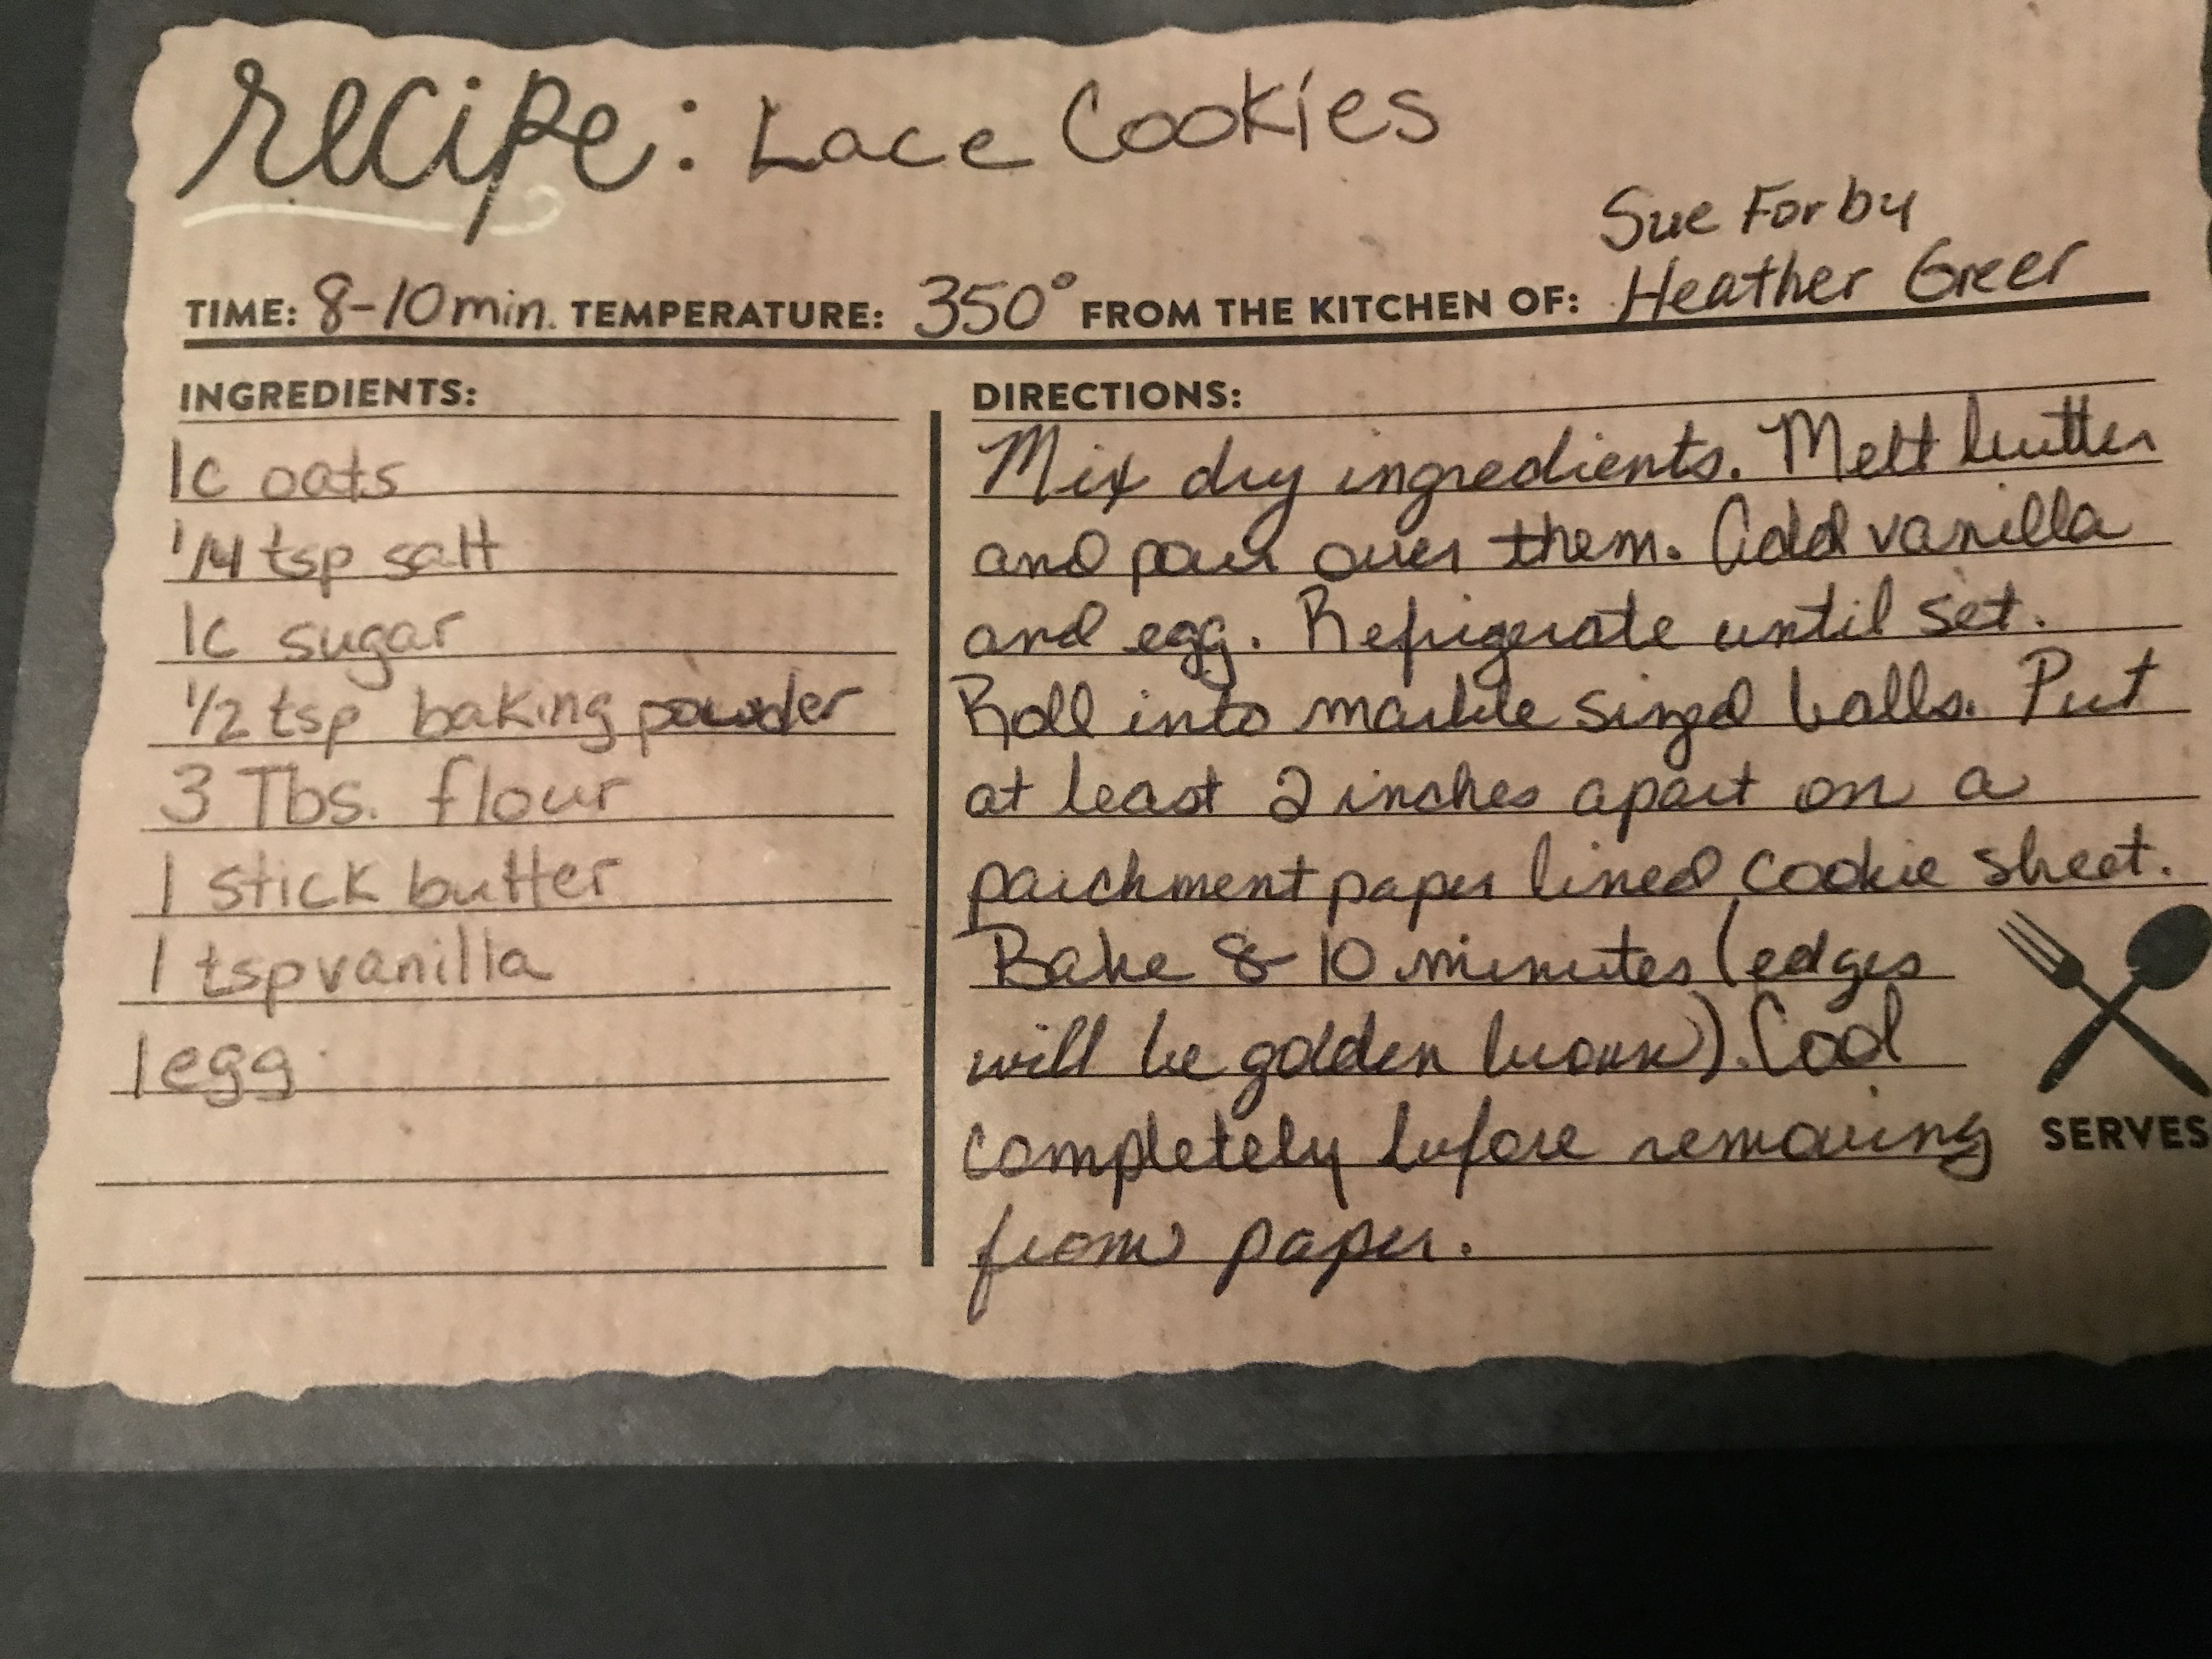 recipe: Lace Cookies
Sue Forby
TIME: 8-10 min. TEMPERATURE: 350° FROM THE KITCHEN OF: Heather Greer
INGREDIENTS:
1c oats
1/4 tsp salt
1c sugar
1/2 tsp baking powder
3 Tbs. flour
1 stick butter
1 tsp vanilla
1 egg
DIRECTIONS:
Mix dry ingredients. Melt butter
and pour over them. Add vanilla
and egg. Refrigerate until set.
Roll into marble sized balls. Put
at least 2 inches apart on a
parchment paper lined cookie sheet.
Bake 8-10 minutes (edges
will be golden brown). Cool
completely before removing
from paper.
SERVES